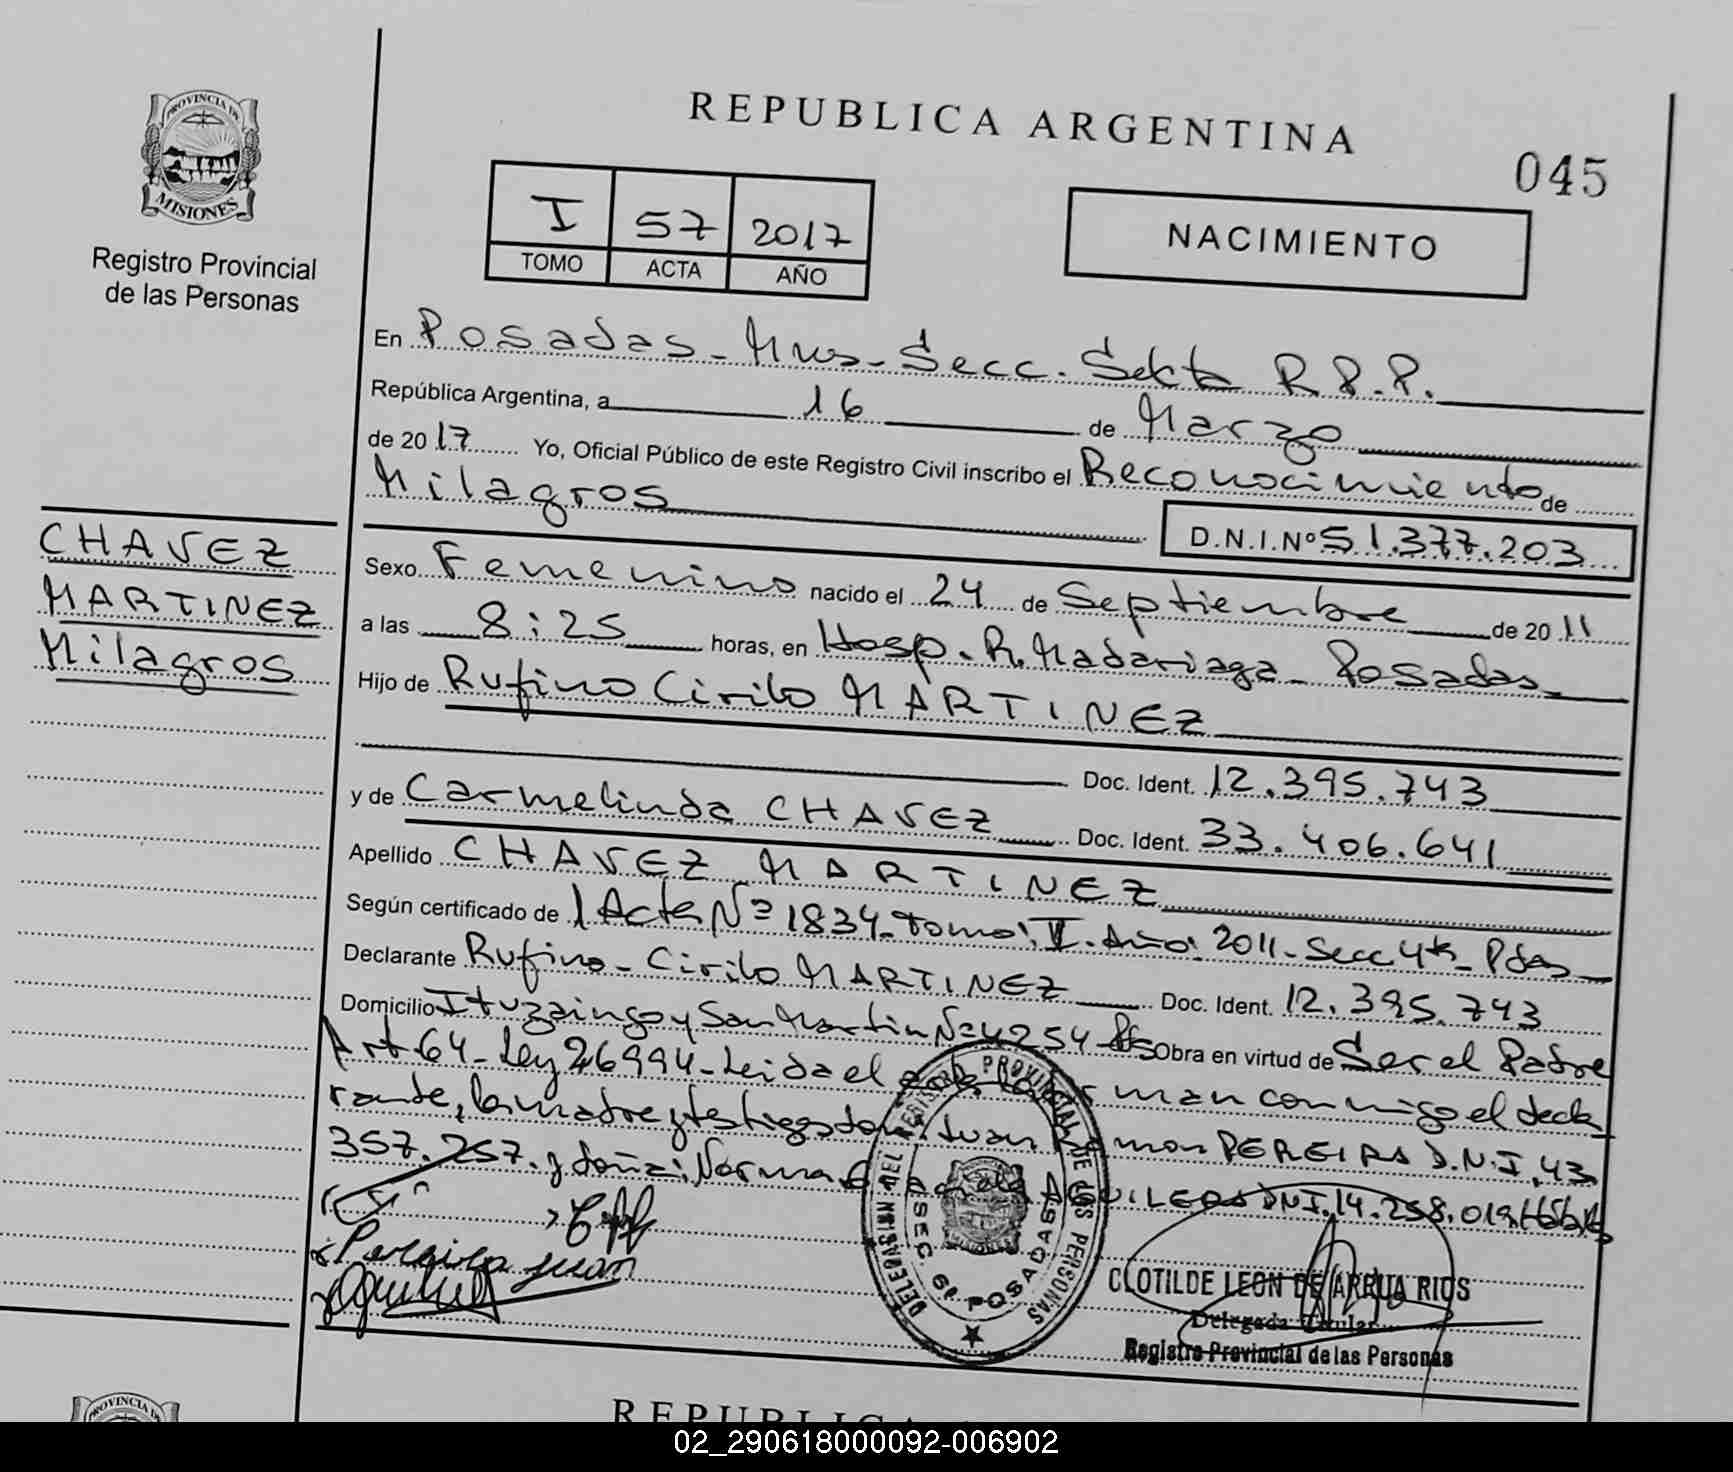 PROVINCIA DE
MISIONES
Registro Provincial
de las Personas
CHAVEZ
MARTINEZ
Milagros
REPUBLICA ARGENTINA
045
I 57 2017
TOMO ACTA AÑO
NACIMIENTO
En Posadas - Mnes - Secc. Sexta R.P.P.
República Argentina, a 16 de Marzo
de 2017 Yo, Oficial Público de este Registro Civil inscribo el Reconocimiento de
Milagros
D.N.I.Nº 51.377.203
Sexo Femenino nacido el 24 de Septiembre de 2011
a las 8:25 horas, en Hosp. R. Madariaga - Posadas
Hijo de Rufino Cirilo MARTINEZ
Doc. Ident. 12.395.743
y de Carmelinda CHAVEZ Doc. Ident. 33.406.641
Apellido CHAVEZ MARTINEZ
Según certificado de Acta Nº 1834 - Tomo: Año: 2011 - Secc 4ta - Pdas
Declarante Rufino - Cirilo MARTINEZ Doc. Ident. 12.395.743
Domicilio Ituzaingo y San Martin Nº 4254 Pdas Obra en virtud de Ser el Padre
Art. 64 - Ley 26994 - Leida el acta la firman conmigo el decla
rante, la madre y testigos don: Juan Ramon PEREIRA D.N.I. 43
357.257. y doña: Norma AGUILERA DNI. 14.258.019
Pereira Juan
DELEGACION DEL REGISTRO PROVINCIAL DE LAS PERSONAS
SEC. 6ª POSADAS
MISIONES
CLOTILDE LEON DE ARRUA RIOS
Delegada Titular
Registro Provincial de las Personas
PROVINCIA DE
REPUBLICA
02_290618000092-006902